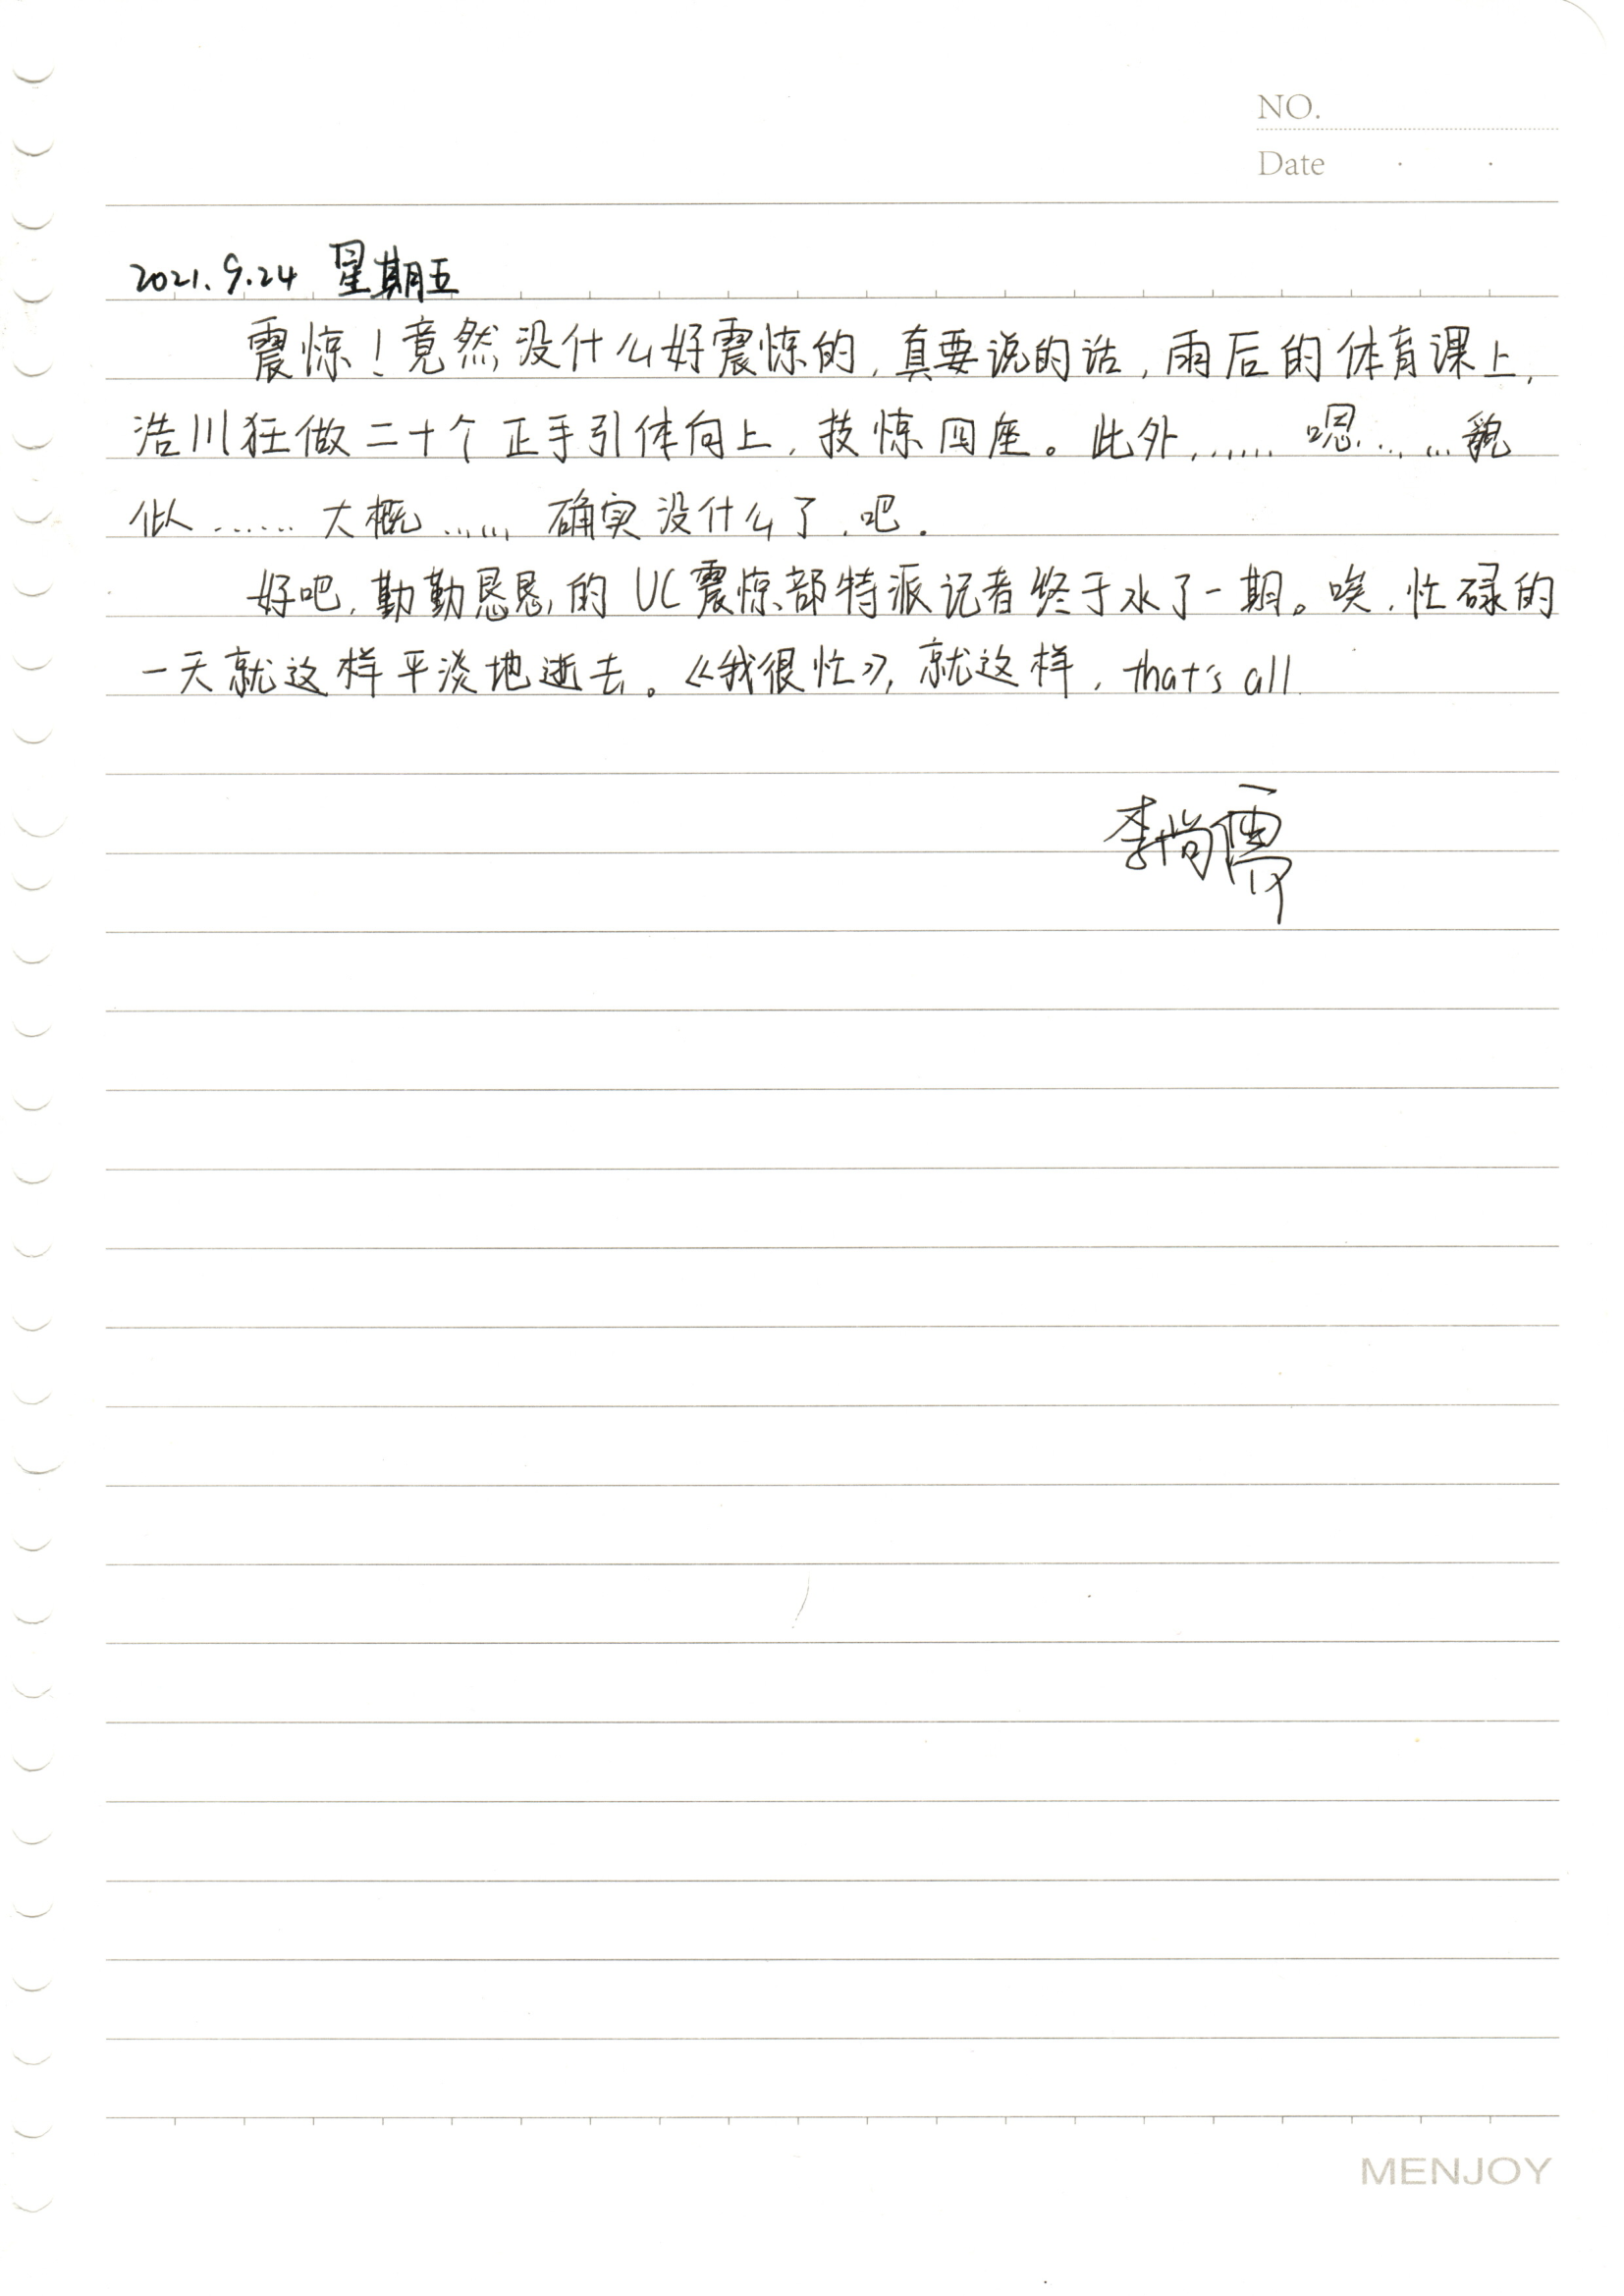 NO.
Date · ·
2021.9.24 星期五
震惊！竟然没什么好震惊的，真要说的话，雨后的体育课上，
浩川狂做二十个正手引体向上，技惊四座。此外，…… 嗯……貌
似…… 大概…… 确实没什么了，吧．
好吧，勤勤恳恳的UC震惊部特派记者终于水了一期。唉，忙碌的
一天就这样平淡地逝去。《我很忙》，就这样，that's all
李尚儒
MENJOY